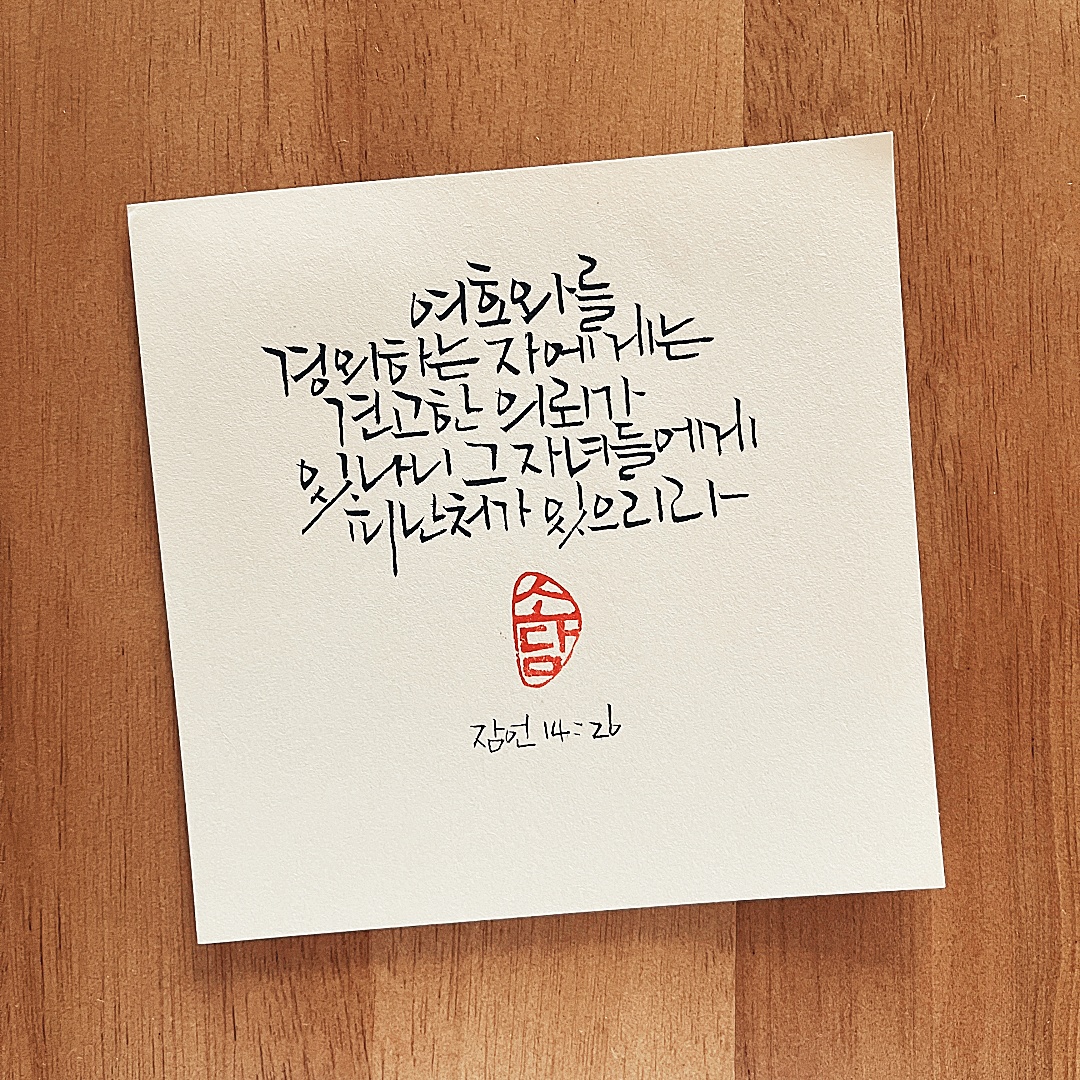 여호와를
경외하는 자에게는
견고한 의뢰가
있나니 그 자녀들에게
피난처가 있으리라
소
담
잠언 14:26